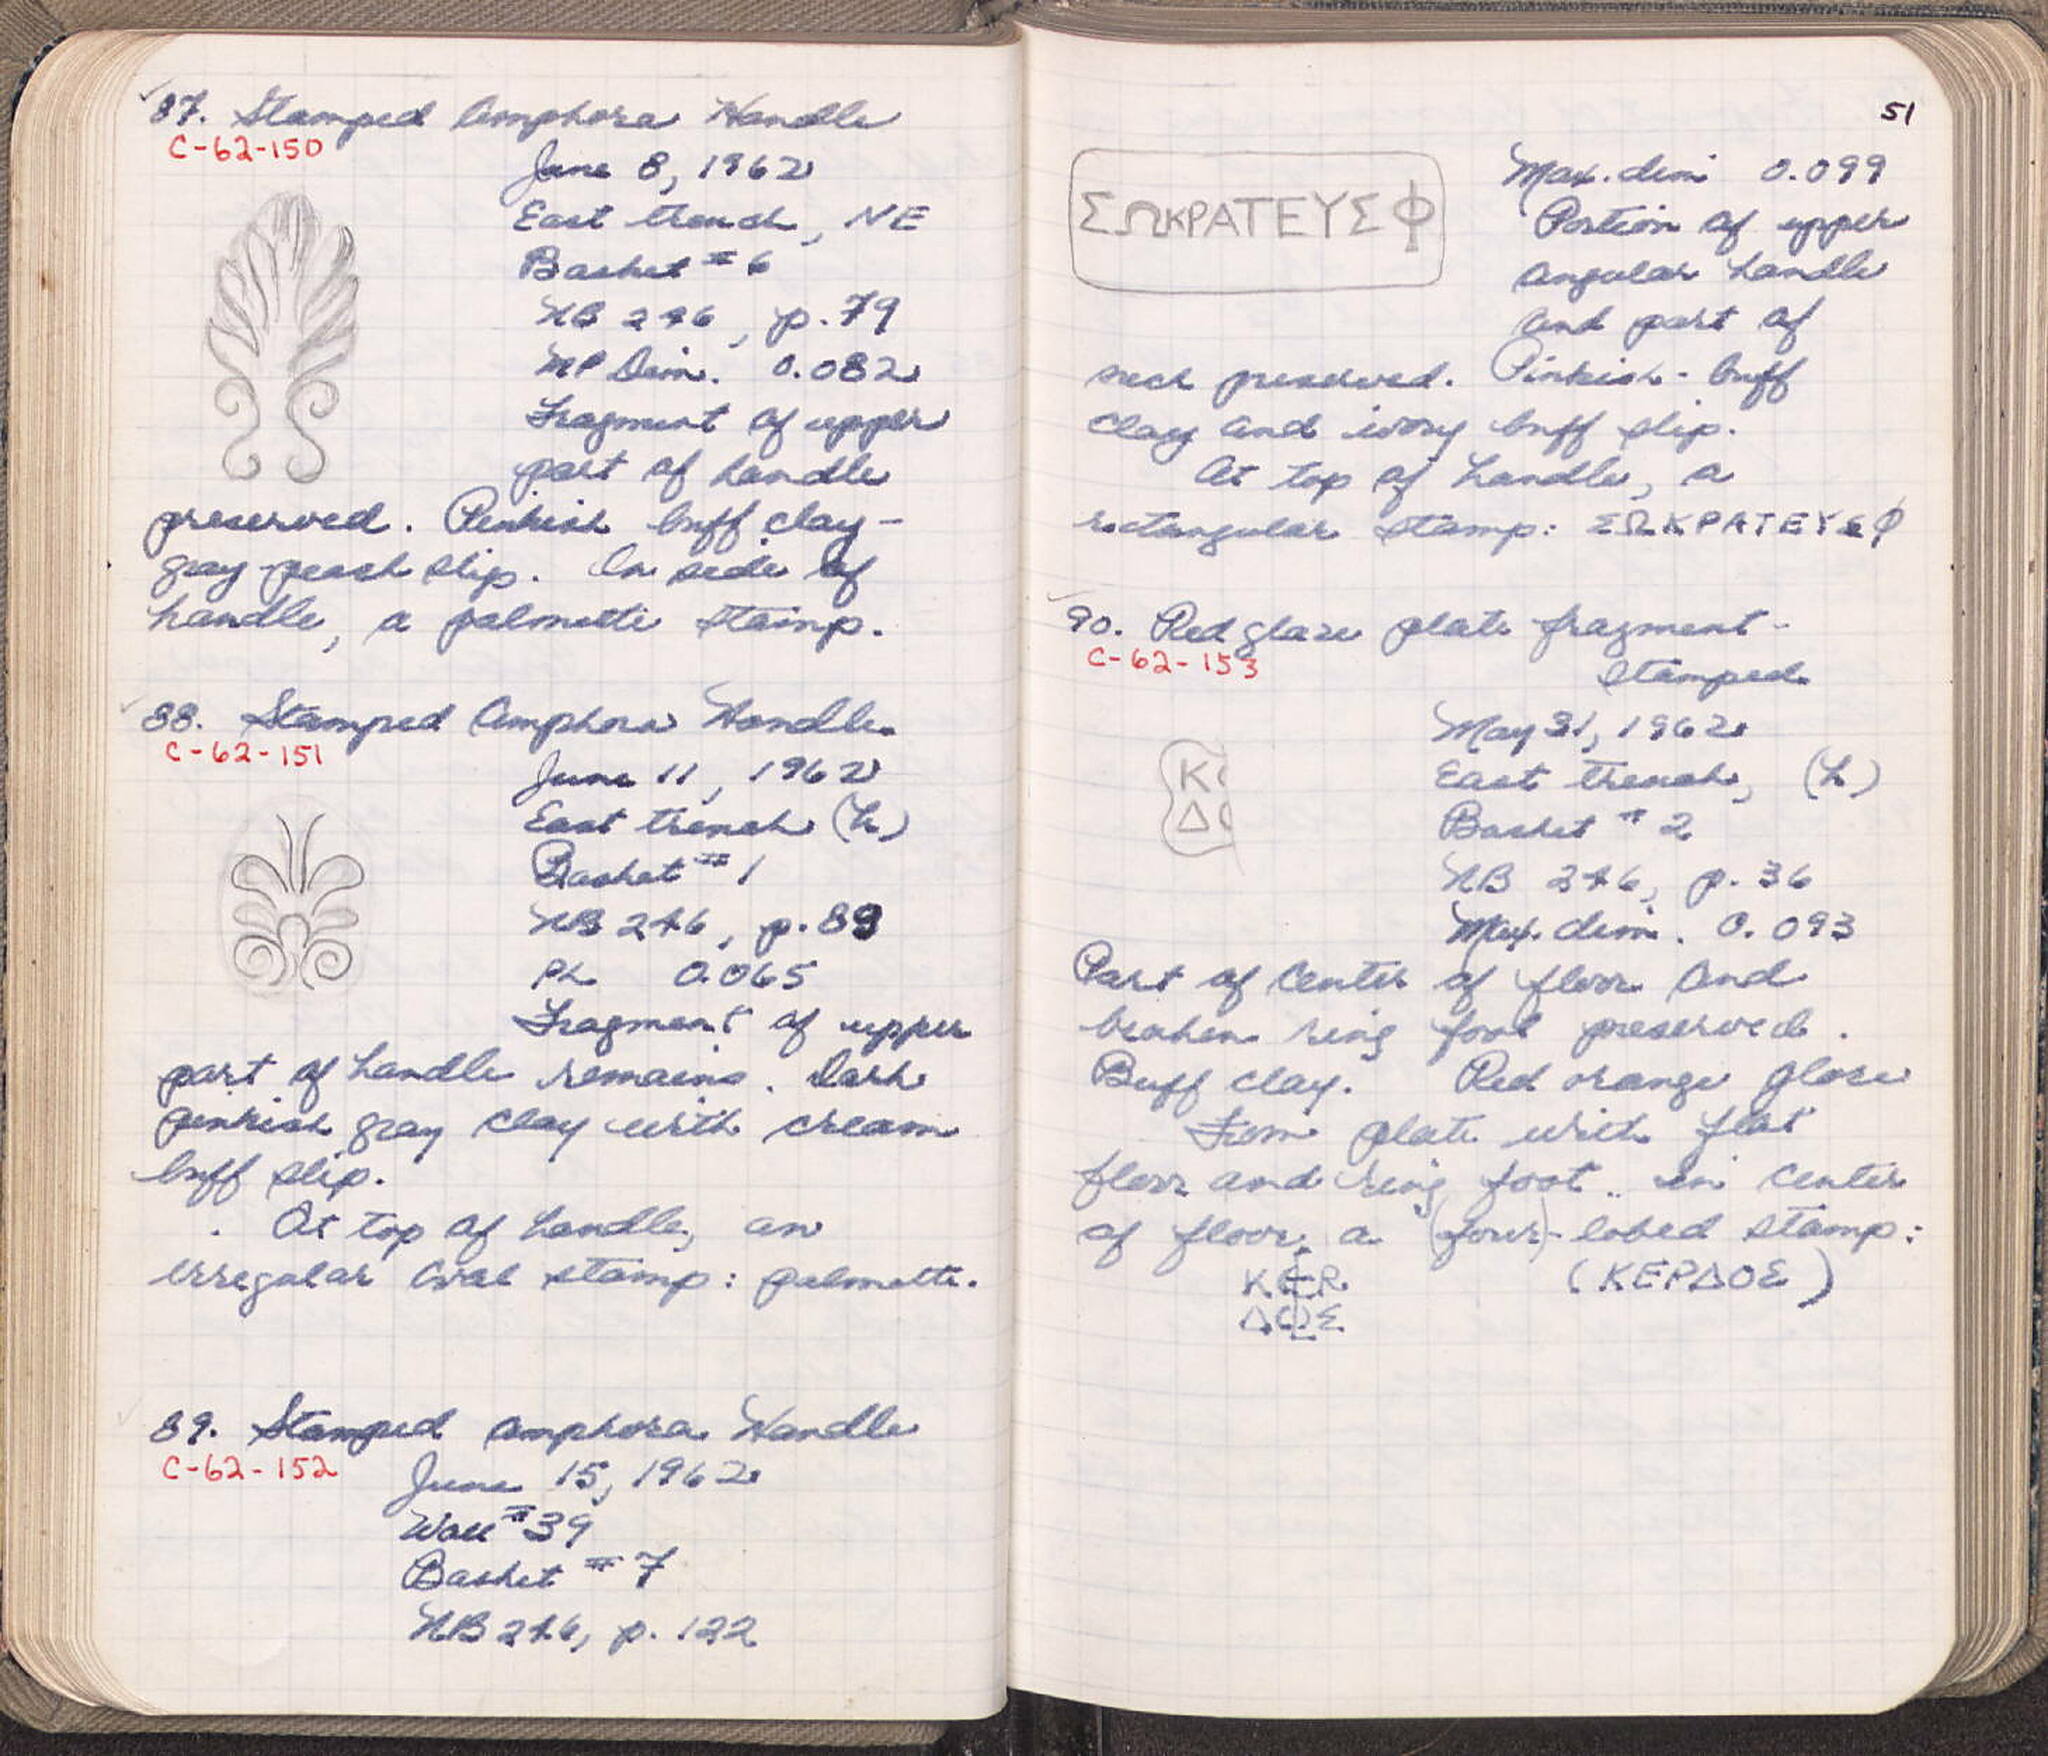 87. Stamped Amphora Handle
C-62-150
June 8, 1962
East trench, NE
Basket #6
NB 246, p. 79
MP Dim. 0.082
Fragment of upper
part of handle
preserved. Pinkish buff clay -
gray-peach slip. On side of
handle, a palmette stamp.
88. Stamped Amphora Handle
C-62-151
June 11, 1962
East trench (h)
Basket #1
NB 246, p. 89
PL 0.065
Fragment of upper
part of handle remains. Dark
pinkish gray clay with cream
buff slip.
At top of handle, an
irregular oval stamp: palmette.
89. Stamped Amphora Handle
C-62-152
June 15, 1962
Wall #39
Basket #7
NB 246, p. 122
51
ΣΩΚΡΑΤΕΥΣΦ
Max. dim 0.099
Portion of upper
angular handle
and part of
neck preserved. Pinkish-buff
clay and ivory buff slip.
At top of handle, a
rectangular stamp: ΣΩΚΡΑΤΕΥΣΦ
90. Red glaze plate fragment-
C-62-153
stamped
Κ
Δ
May 31, 1962
East trench, (h)
Basket #2
NB 246, p. 36
Max. dim. 0.093
Part of center of floor and
broken ring foot preserved.
Buff clay. Red orange glaze
From plate with flat
floor and ring foot.. in center
of floor, a (four)-lobed stamp:
ΚΕΡ (ΚΕΡΔΟΣ)
ΔΩΣ